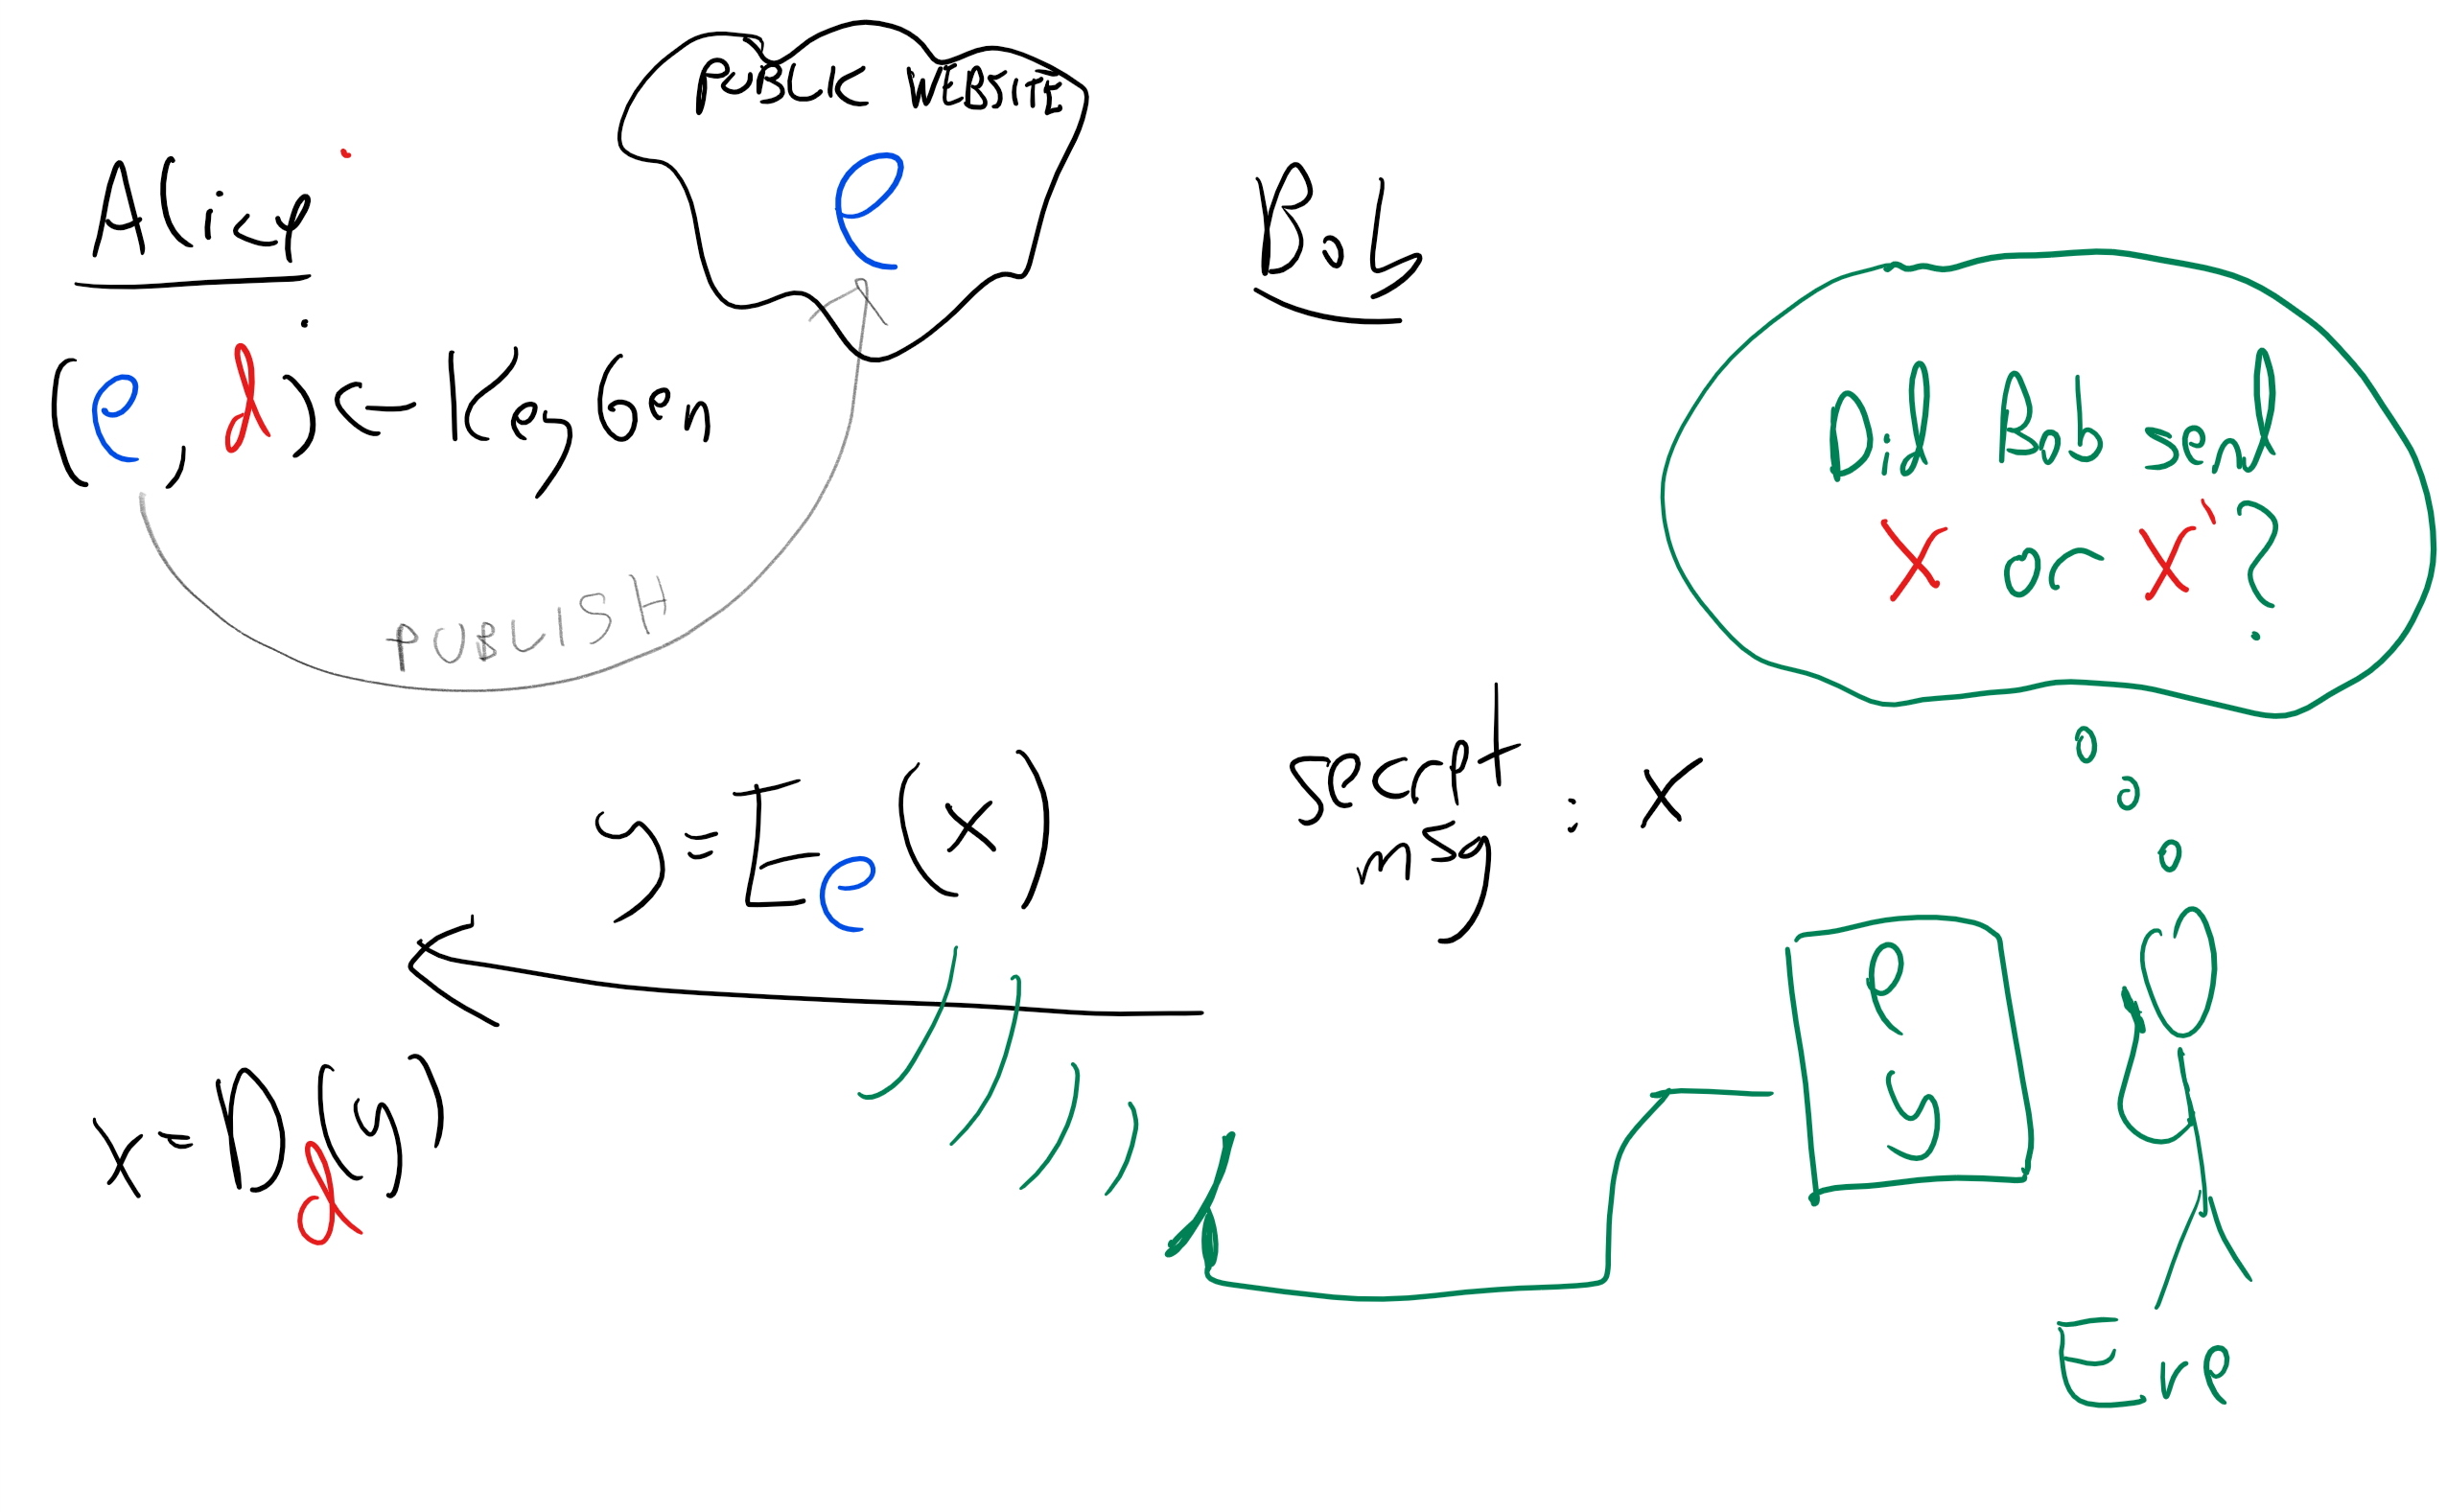 PUBLIC WEBSITE
e
Alice
Bob
(e, d) <- KeyGen
PUBLISH
Did Bob send
x or x' ?
secret msg : x
y = E_e(x)
x = D_d(y)
e
y
Eve